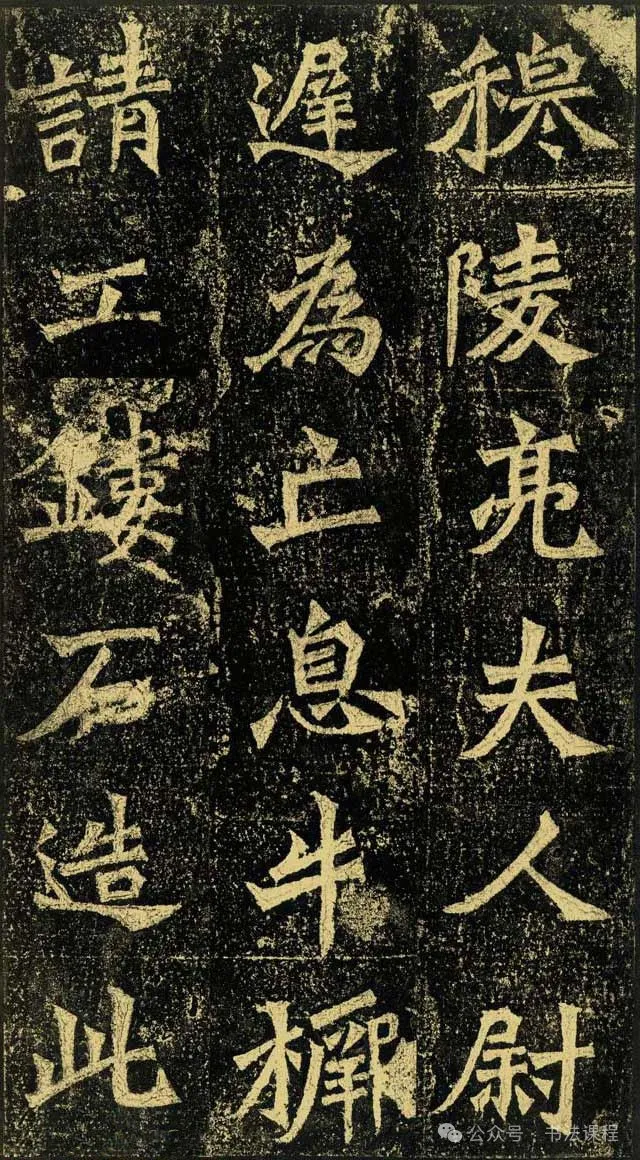 穆陵亮夫人尉
遲為亡息牛橛
請工鏤石造此
公众号 · 书法课程